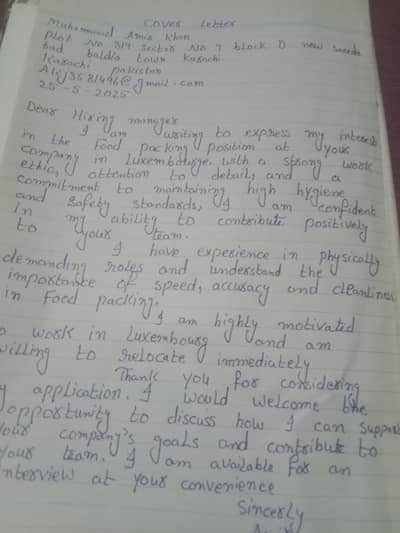 Cover Letter
Muhammad Amir Khan
plot No 319 sector No 7 block D new saeeda
bad baldia town Karachi
Karachi pakistan
25-5-2025
Dear Hiring manager
I am writing to express my interest
in the Food packing position at your
company in Luxembourge. with a strong work
ethic, attention to details, and a
commitment to maintaining high hygiene
and safety standards, I am confident
in my ability to contribute positively
to your team.
I have experience in physically
demanding roles and understand the
importance of speed, accuracy and cleanliness
in Food packing.
I am highly motivated
o work in Luxembourg and am
willing to relocate immediately
Thank you for considering
y application. I would welcome the
opportunity to discuss how I can support
your company's goals and contribute to
your team. I am available for an
nterview at your convenience
Sincerly